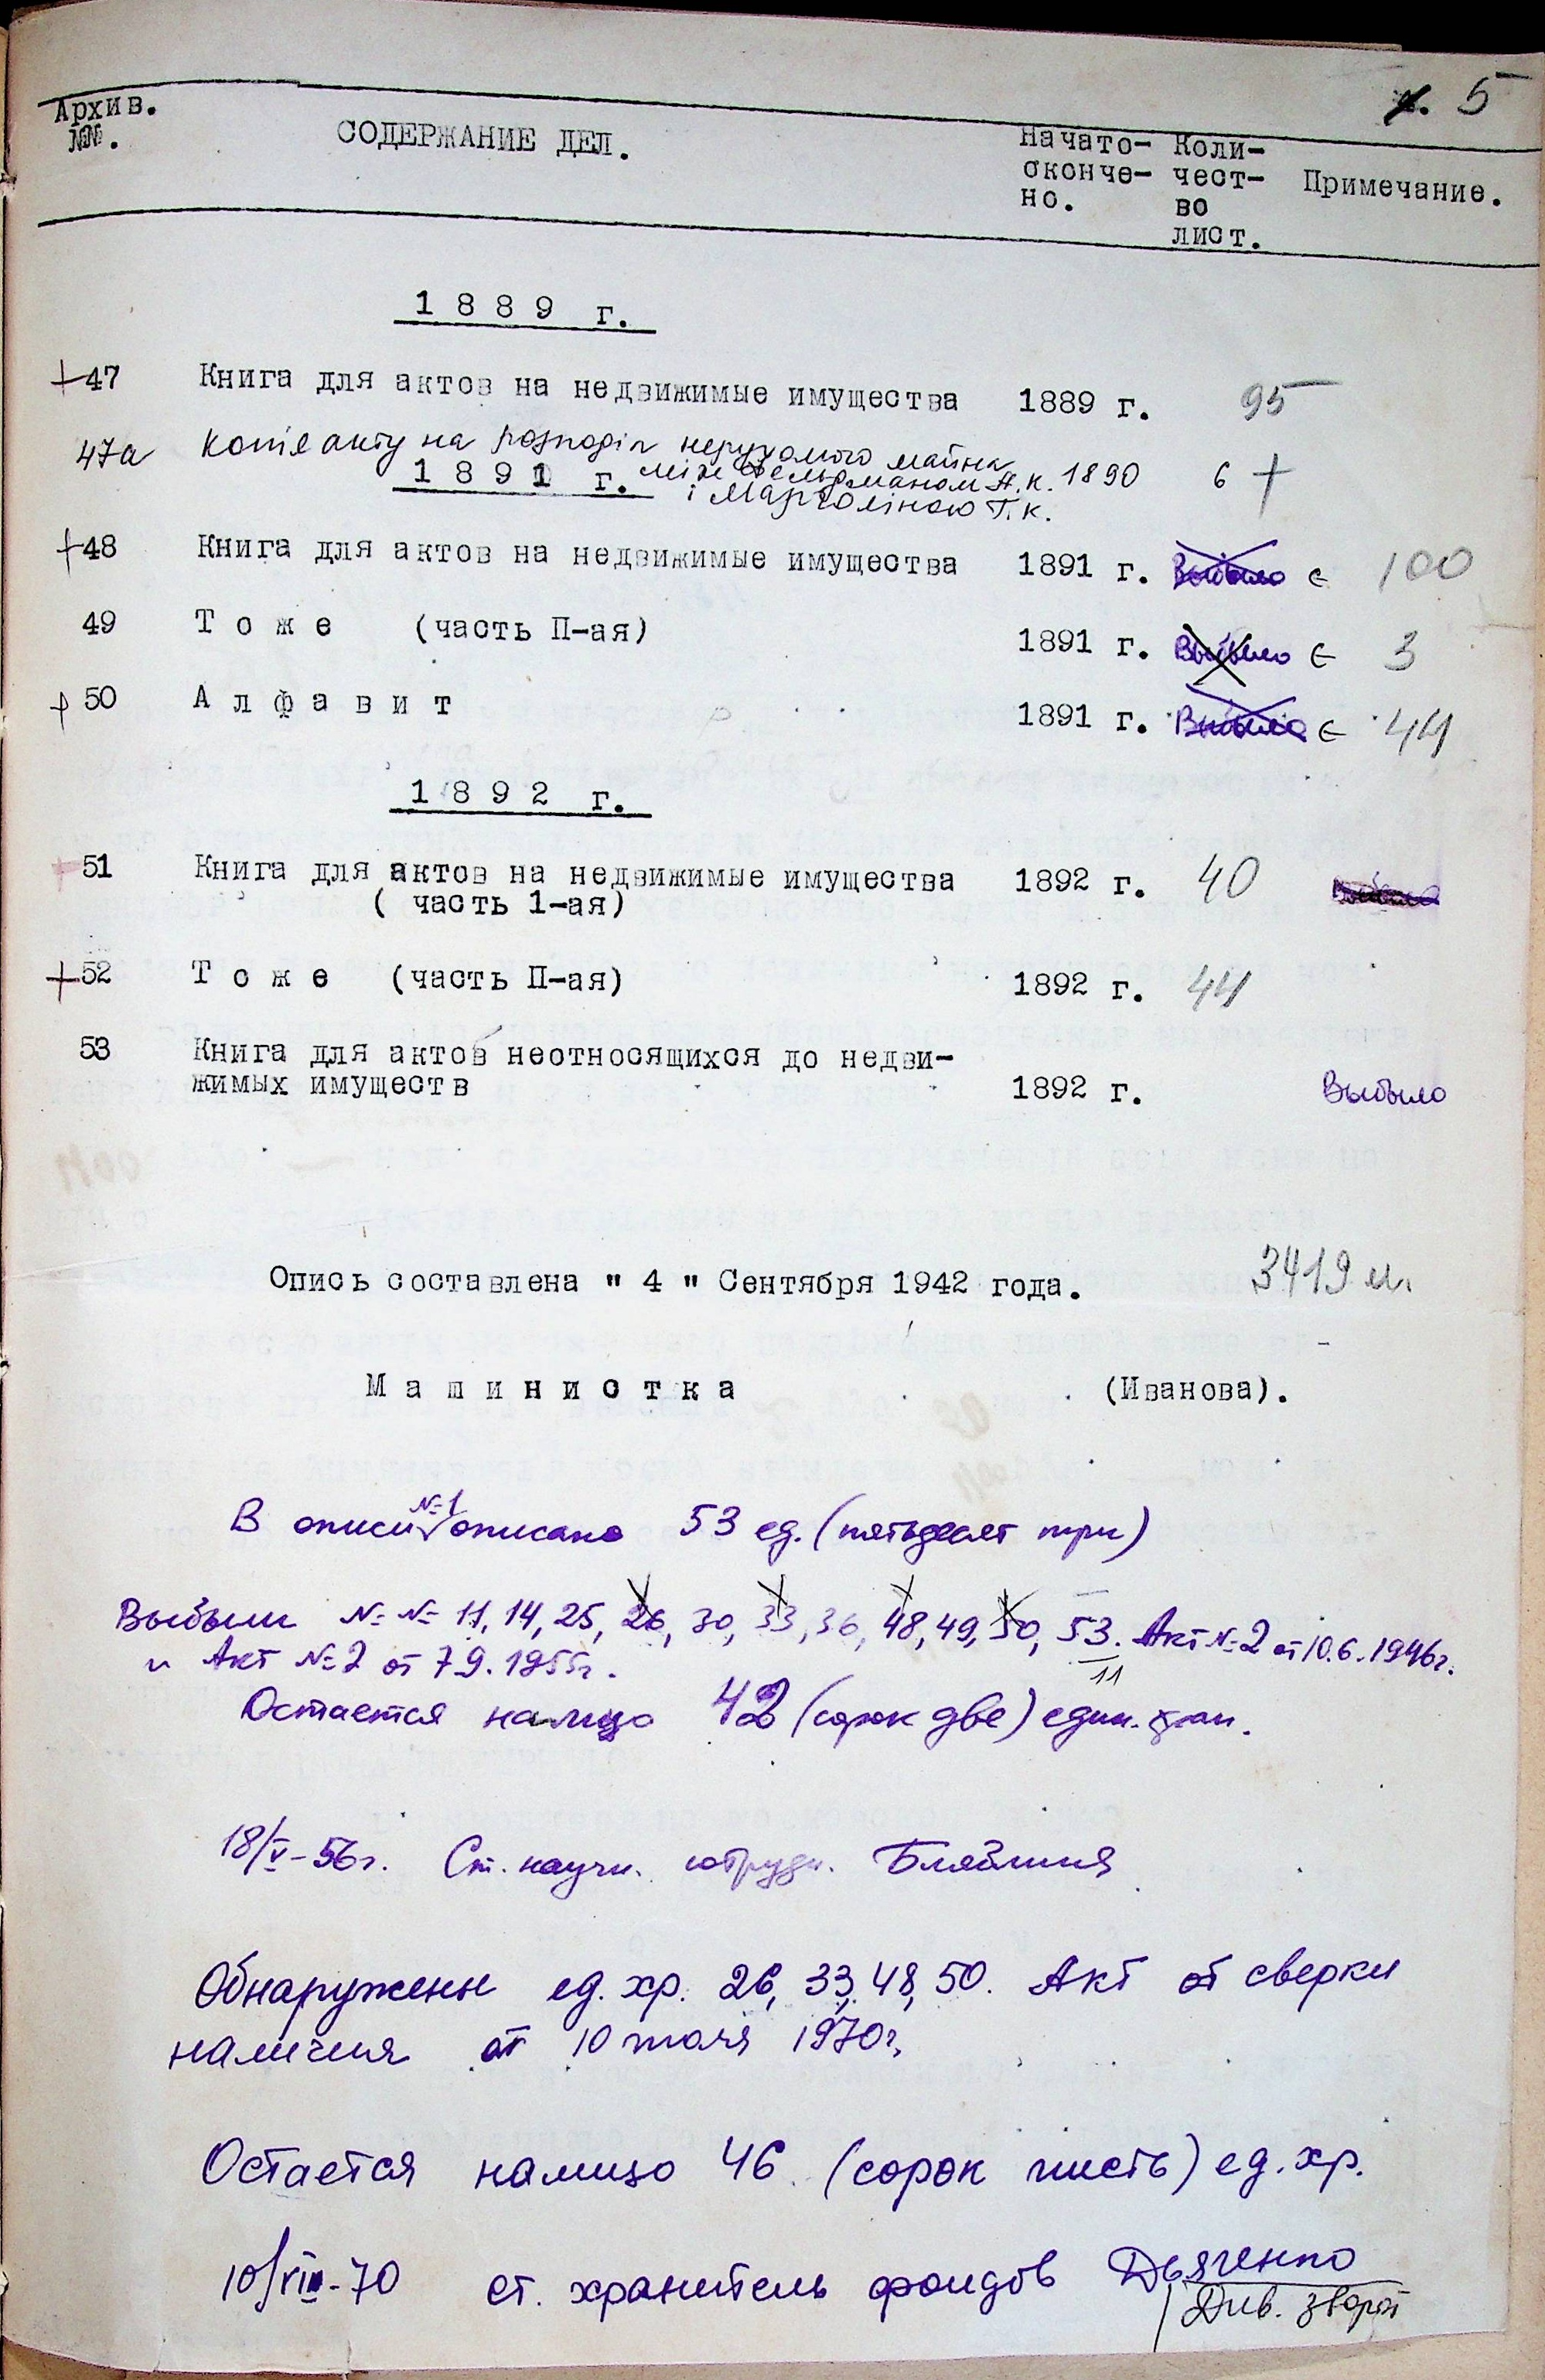 л. 5
Архив. №№. СОДЕРЖАНИЕ ДЕЛ. Начато-оконче-но. Коли-чест-во лист. Примечание.
1889 г.
+47 Книга для актов на недвижимые имущества 1889 г. 95
47а Копія акту на розподіл нерухомого майна
між Фельдманом А.К. 1890 6 +
і Марголіною Т.К.
1891 г.
+48 Книга для актов на недвижимые имущества 1891 г. Выбыло є 100
49 Тоже (часть П-ая) 1891 г. Выбыло є 3
+50 Алфавит 1891 г. Выбыло є 44
1892 г.
+51 Книга для актов на недвижимые имущества 1892 г. 40 Выбыло
( часть 1-ая)
+52 Тоже (часть П-ая) 1892 г. 44
53 Книга для актов неотносящихся до недви-
жимых имуществ 1892 г. Выбыло
Опись составлена " 4 " Сентября 1942 года. 3419 л.
Машинистка (Иванова).
В описи №1 описано 53 ед. (пятьдесят три)
Выбыли №№ 11, 14, 25, 26, 30, 33, 36, 48, 49, 50, 53. Акт №2 от 10.6.1946г.
11
и Акт №2 от 7.9.1955г.
Остается налицо 42 (сорок две) един. хран.
18/V-56г. Ст. научн. сотрудн.
Обнаружены ед. хр. 26, 33, 48, 50. Акт от сверки
наличия от 10 июля 1970г.
Остается налицо 46 (сорок шесть) ед. хр.
10/VIII-70 ст. хранитель фондов Дьяченко
Див. зворот